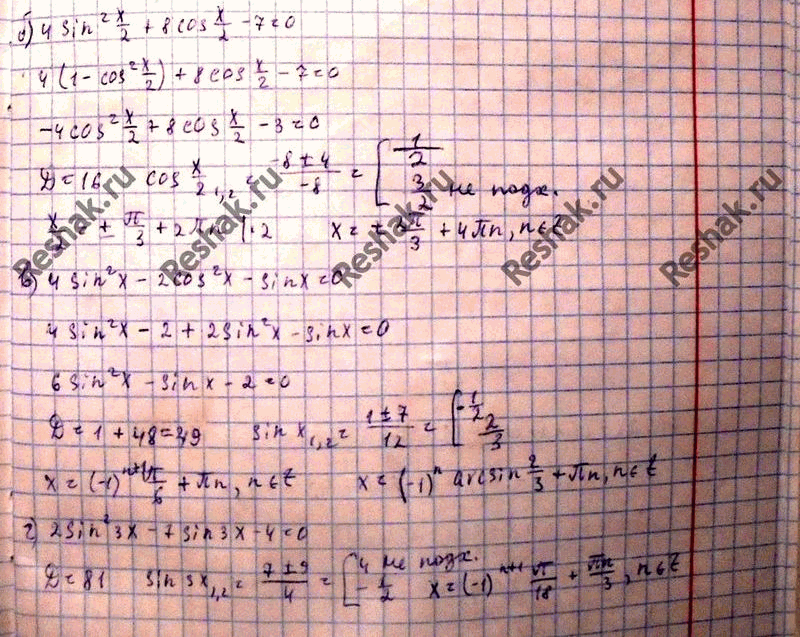 б) 4 sin² x/2 + 8 cos x/2 - 7 = 0
4(1 - cos² x/2) + 8 cos x/2 - 7 = 0
-4 cos² x/2 + 8 cos x/2 - 3 = 0
D = 16 cos x/2 ₁,₂ = (-8 ± 4)/(-8) = [ 1/2 ; 3/2 не подх.
x/2 = ± π/3 + 2πn |·2 x = ± 2π/3 + 4πn, n∈Z
в) 4 sin²x - 2cos²x - sinx = 0
4 sin²x - 2 + 2sin²x - sinx = 0
6 sin²x - sinx - 2 = 0
D = 1 + 48 = 49 sin x₁,₂ = (1 ± 7)/12 = [ -1/2 ; 2/3
x = (-1)ⁿ⁺¹ π/6 + πn, n∈Z x = (-1)ⁿ arcsin 2/3 + πn, n∈Z
г) 2sin²3x - 7sin3x - 4 = 0
D = 81 sin 3x₁,₂ = (7 ± 9)/4 = [ 4 не подх. ; -1/2 x = (-1)ⁿ⁺¹ π/18 + πn/3, n∈Z
Reshak.ru
Reshak.ru
Reshak.ru
Reshak.ru
Reshak.ru